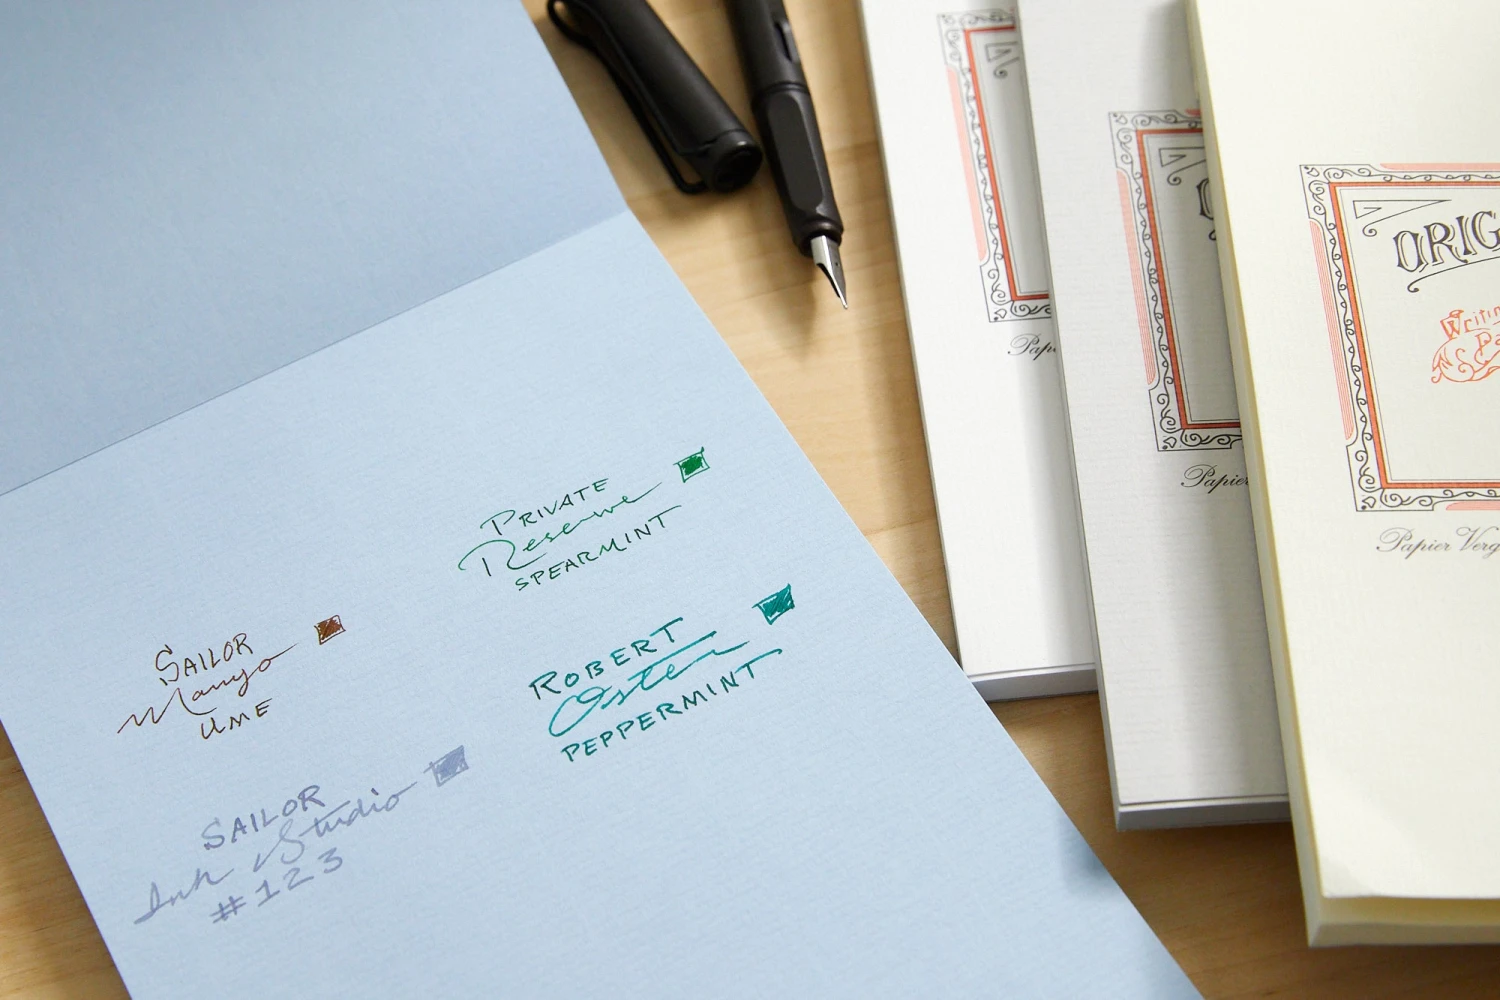 PRIVATE
Reserve
SPEARMINT
SAILOR
Manyo
UME
ROBERT
Oster
PEPPERMINT
SAILOR
Ink Studio
#123
Papier
ORIG
Writin
Pa
Papier Verg